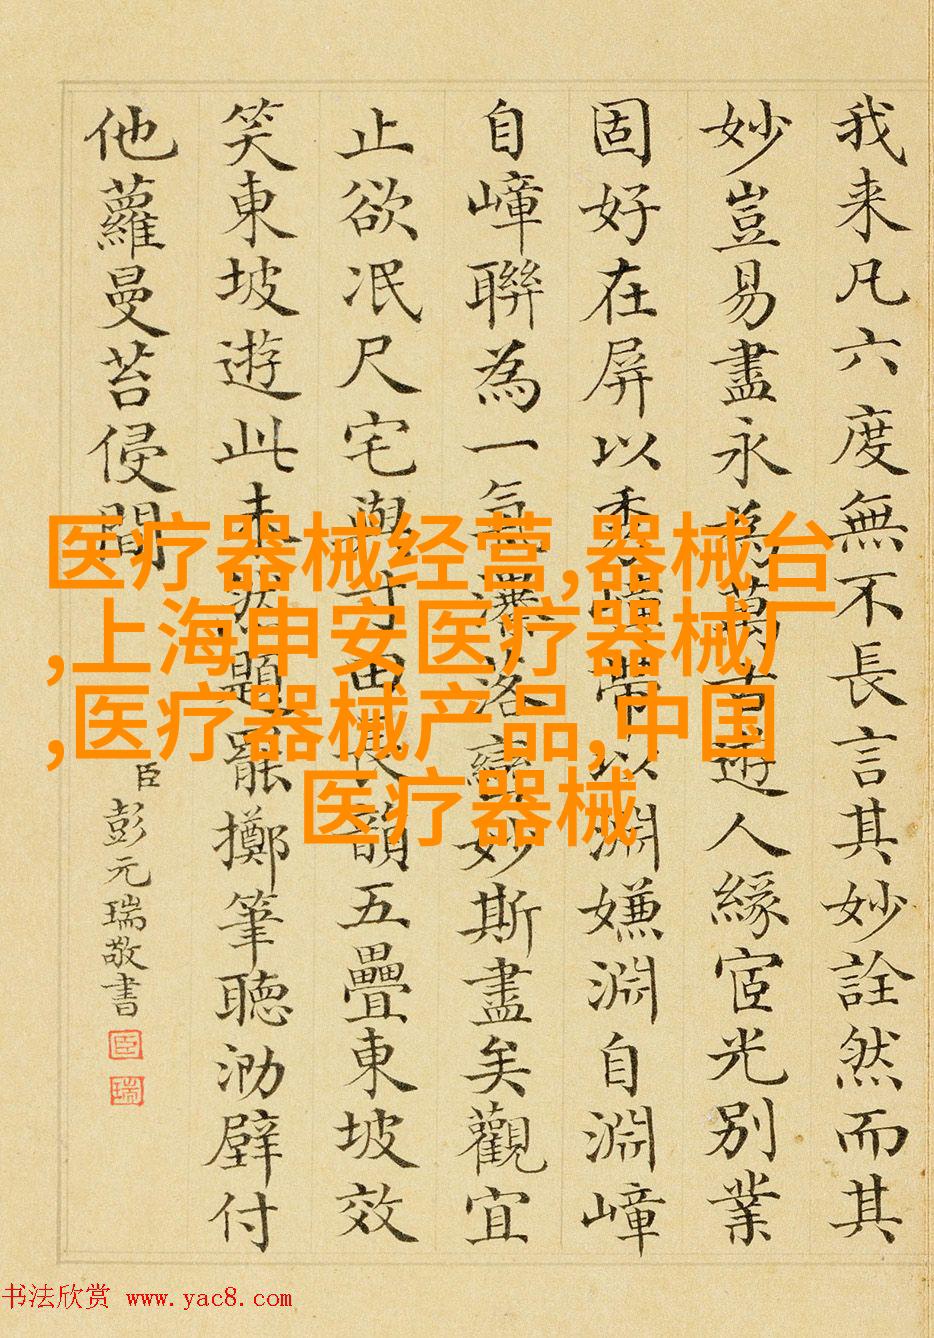 我来凡六度無不長言其妙詮然而其
妙豈易盡永為萬古逰人緣宧光別業
固好在屏以秀嶂帶以淵嫌淵自淵嶂
自嶂聯為一氣落巒妙斯盡矣觀宜
止欲冺尺宅與寸田長韻五疊東坡效
笑東坡遊此未題罷擲筆聴泐壁付
他蘿曼苔侵間
臣彭元瑞敬書
臣
瑞
医疗器械经营,器械台
,上海申安医疗器械厂
,医疗器械产品,中国
医疗器械
书法欣赏 www.yac8.com